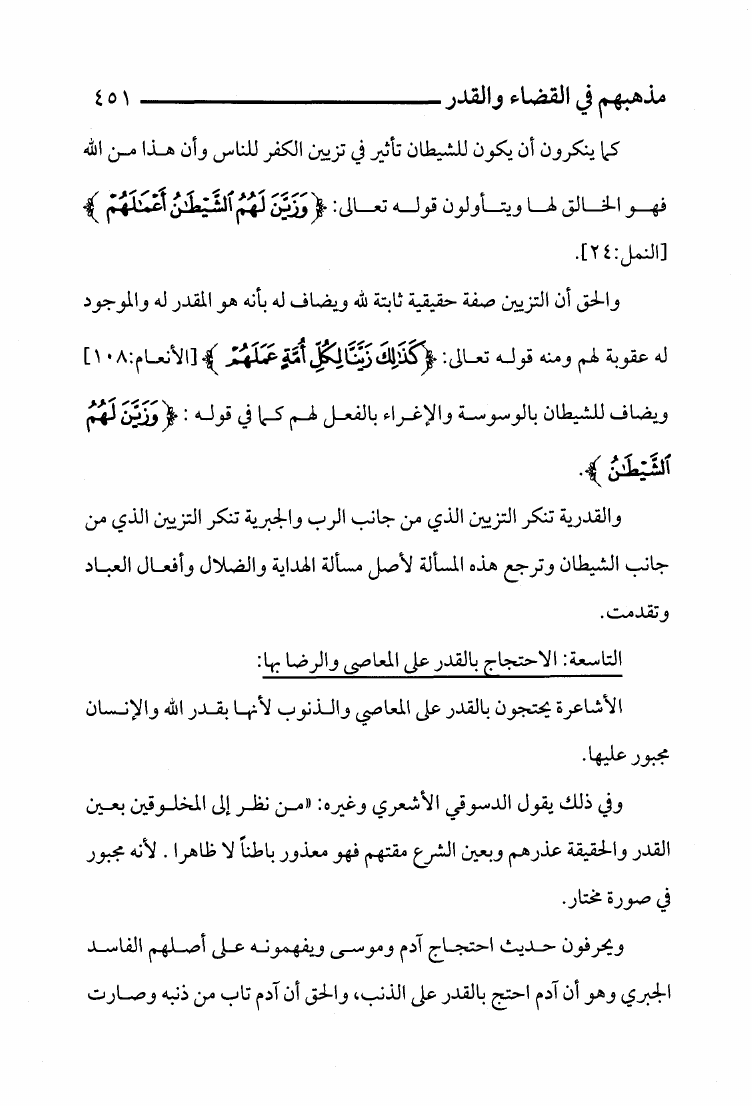 مذهبهم في القضاء والقدر ٤٥١
كما ينكرون أن يكون للشيطان تأثير في تزيين الكفر للناس وأن هذا من الله
فهو الخالق لها ويتأولون قوله تعالى: ﴿وَزَيَّنَ لَهُمُ ٱلشَّيْطَٰنُ أَعْمَٰلَهُمْ﴾
[النمل:٢٤].
والحق أن التزيين صفة حقيقية ثابتة لله ويضاف له بأنه هو المقدر له والموجود
له عقوبة لهم ومنه قوله تعالى: ﴿كَذَٰلِكَ زَيَّنَّا لِكُلِّ أُمَّةٍ عَمَلَهُمْ﴾ [الأنعام:١٠٨]
ويضاف للشيطان بالوسوسة والإغراء بالفعل لهم كما في قوله : ﴿وَزَيَّنَ لَهُمُ
ٱلشَّيْطَٰنُ﴾.
والقدرية تنكر التزيين الذي من جانب الرب والجبرية تنكر التزيين الذي من
جانب الشيطان وترجع هذه المسألة لأصل مسألة الهداية والضلال وأفعال العباد
وتقدمت.
التاسعة: الاحتجاج بالقدر على المعاصي والرضا بها:
الأشاعرة يحتجون بالقدر على المعاصي والذنوب لأنها بقدر الله والإنسان
مجبور عليها.
وفي ذلك يقول الدسوقي الأشعري وغيره: «من نظر إلى المخلوقين بعين
القدر والحقيقة عذرهم وبعين الشرع مقتهم فهو معذور باطناً لا ظاهرا . لأنه مجبور
في صورة مختار.
ويحرفون حديث احتجاج آدم وموسى ويفهمونه على أصلهم الفاسد
الجبري وهو أن آدم احتج بالقدر على الذنب، والحق أن آدم تاب من ذنبه وصارت